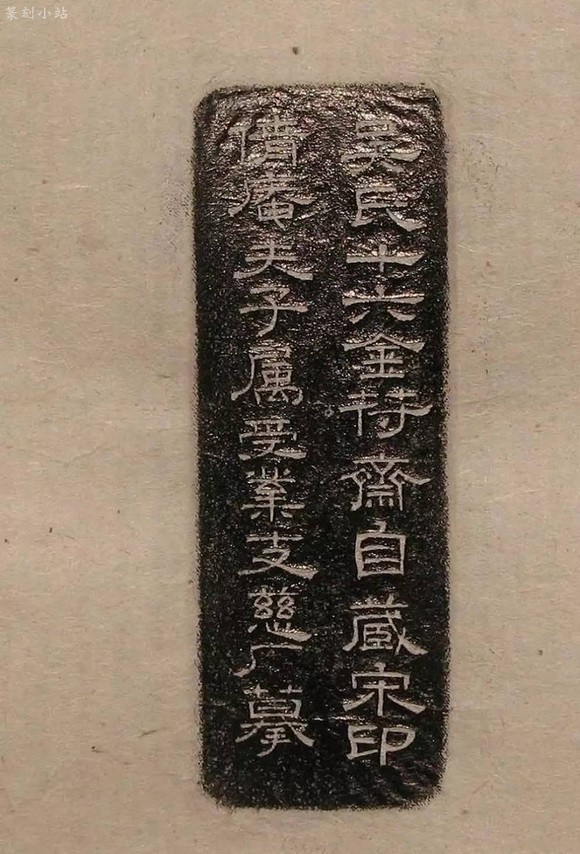 篆刻小站
吴氏十六金符齋自藏宋印
倩庵夫子属受業支慈厂摹